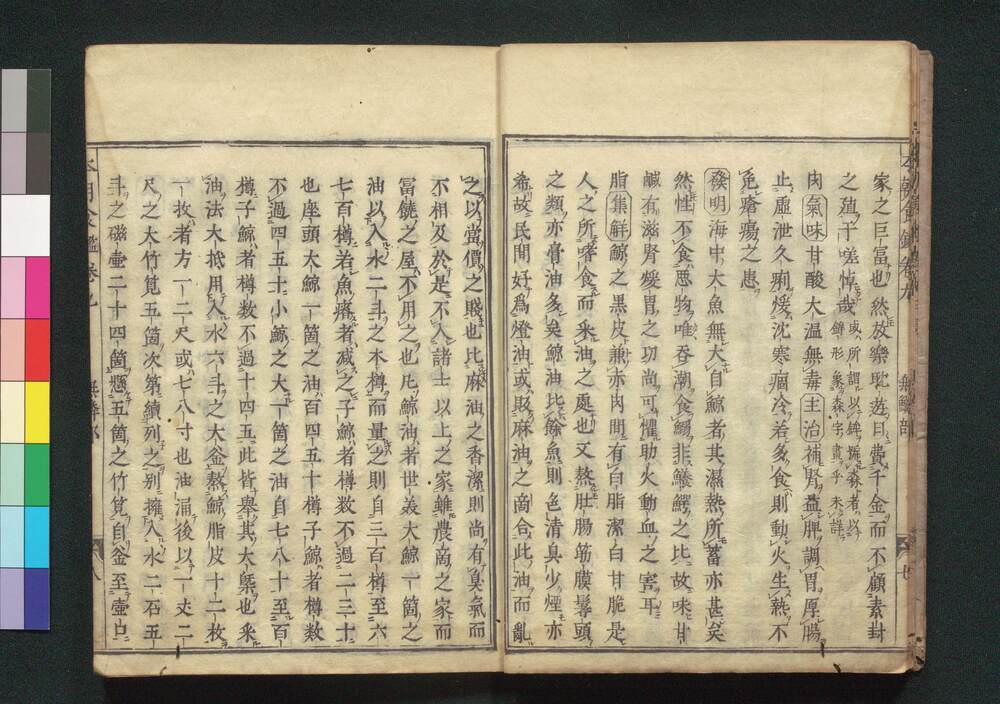 家之巨富也然放樂耽遊日費千金而不顧素封
之殖于嗟悼哉
肉氣味甘酸大温無毒主治補腎益脾調胃厚腸
止虛泄久痢煖沈寒痼冷若多食則動火生熱不
危瘡瘍之患
發明海中大魚無大自鯨者其濕熱所蓄亦甚矣
然性不食惡物唯吞潮食鰯非鱶鰐之比故味甘
鹹有滋腎煖胃之功尚可懼助火動血之害耳
脂集解鯨之黑皮兼赤肉間有白脂潔白甘脆是
人之所嗜食而采油之處也又熬肚腸筋膜鬐頭
之類亦膏油多矣鯨油比餘魚則色清臭少煙亦
希故民間好爲燈油或販麻油之商合此油而亂
之以當價之賤也比麻油之香潔則尚有臭氣而
不相及於是不入諸士以上之家雖農商之家而
冨饒之屋不用之也凡鯨油者世美大鯨一箇之
油以入水二斗之木樽而量之則自三百樽至六
七百樽若魚瘠者減之子鯨者樽數不過二三十
也座頭大鯨一箇之油百四五十樽子鯨者樽數
不過四五十小鯨之大一箇之油自七八十至百
樽子鯨者樽數不過十四五此皆舉其大槩也采
油法大抵用入水六斗之大釜熬鯨脂皮十二枚
一枚者方一二尺或七八寸也油漏後以一丈二
尺之大竹筧五箇次第續列之別擁入水二石五
斗之磁壺二十四箇懸五箇之竹筧自釜至壺口